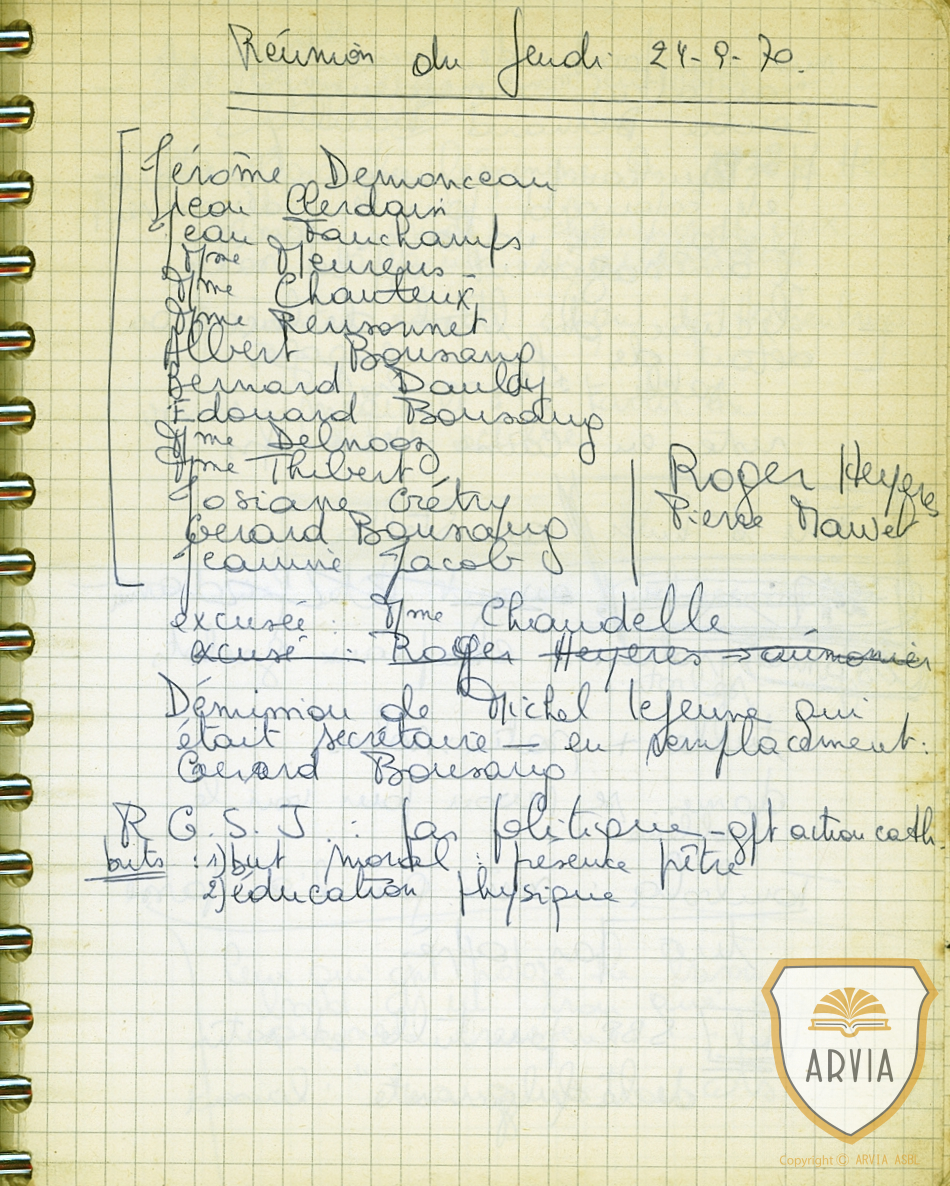 Réunion du Jeudi 24-9-70.
Jérôme Demonceau
Jean Clerdain
Jean Fauchamps
Mme Meurens
Mme Chanteux
Mme Renson­net
Albert Bousang
Bernard Dauldy
Edouard Bousang
Mme Delnooz
Mme Thibert
Josiane Crétry
Gerard Bousang
Jeannine Jacob
Roger Heyeres
Pierre Mawet
excusée : Mme Chaudelle
excusé : Roger Heyeres aumonier
Démission de Michel Lejeune qui
était secrétaire — en remplacement :
Gerard Bousang
R G.S.J. : pas politique - gpt action cath.
buts : 1) but moral : présence prêtre
2) éducation physique
ARVIA
Copyright © ARVIA ASBL